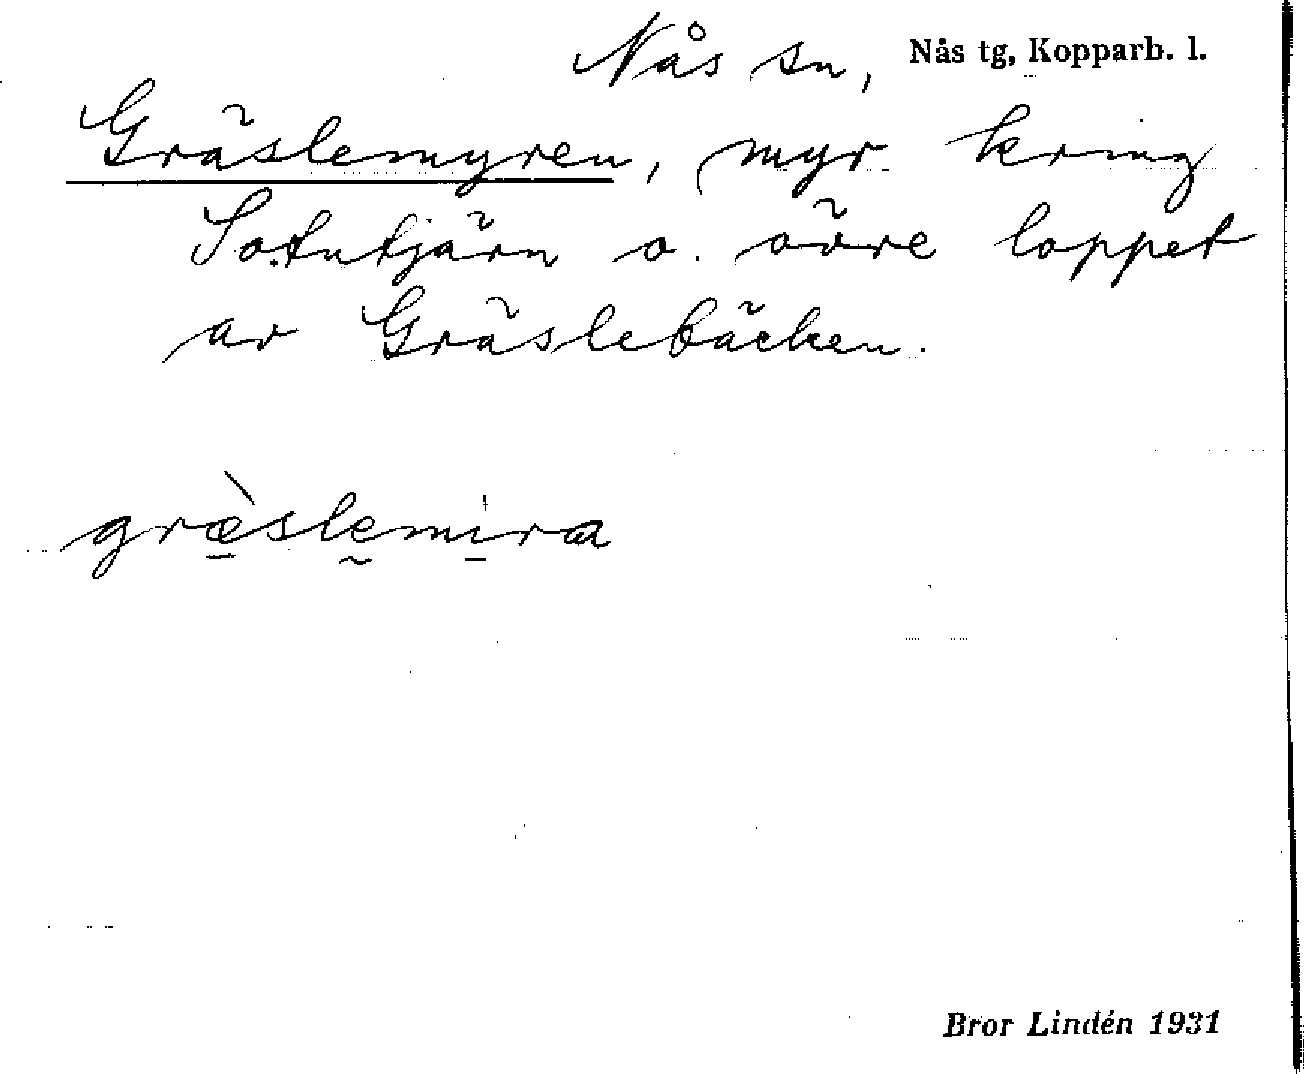 Nås sn, Nås tg, Kopparb. l.
Gräslemyren, myr kring
Sotntjärn o. övre loppet
av Gräslebäcken.
græ̀slemira
Bror Lindén 1931